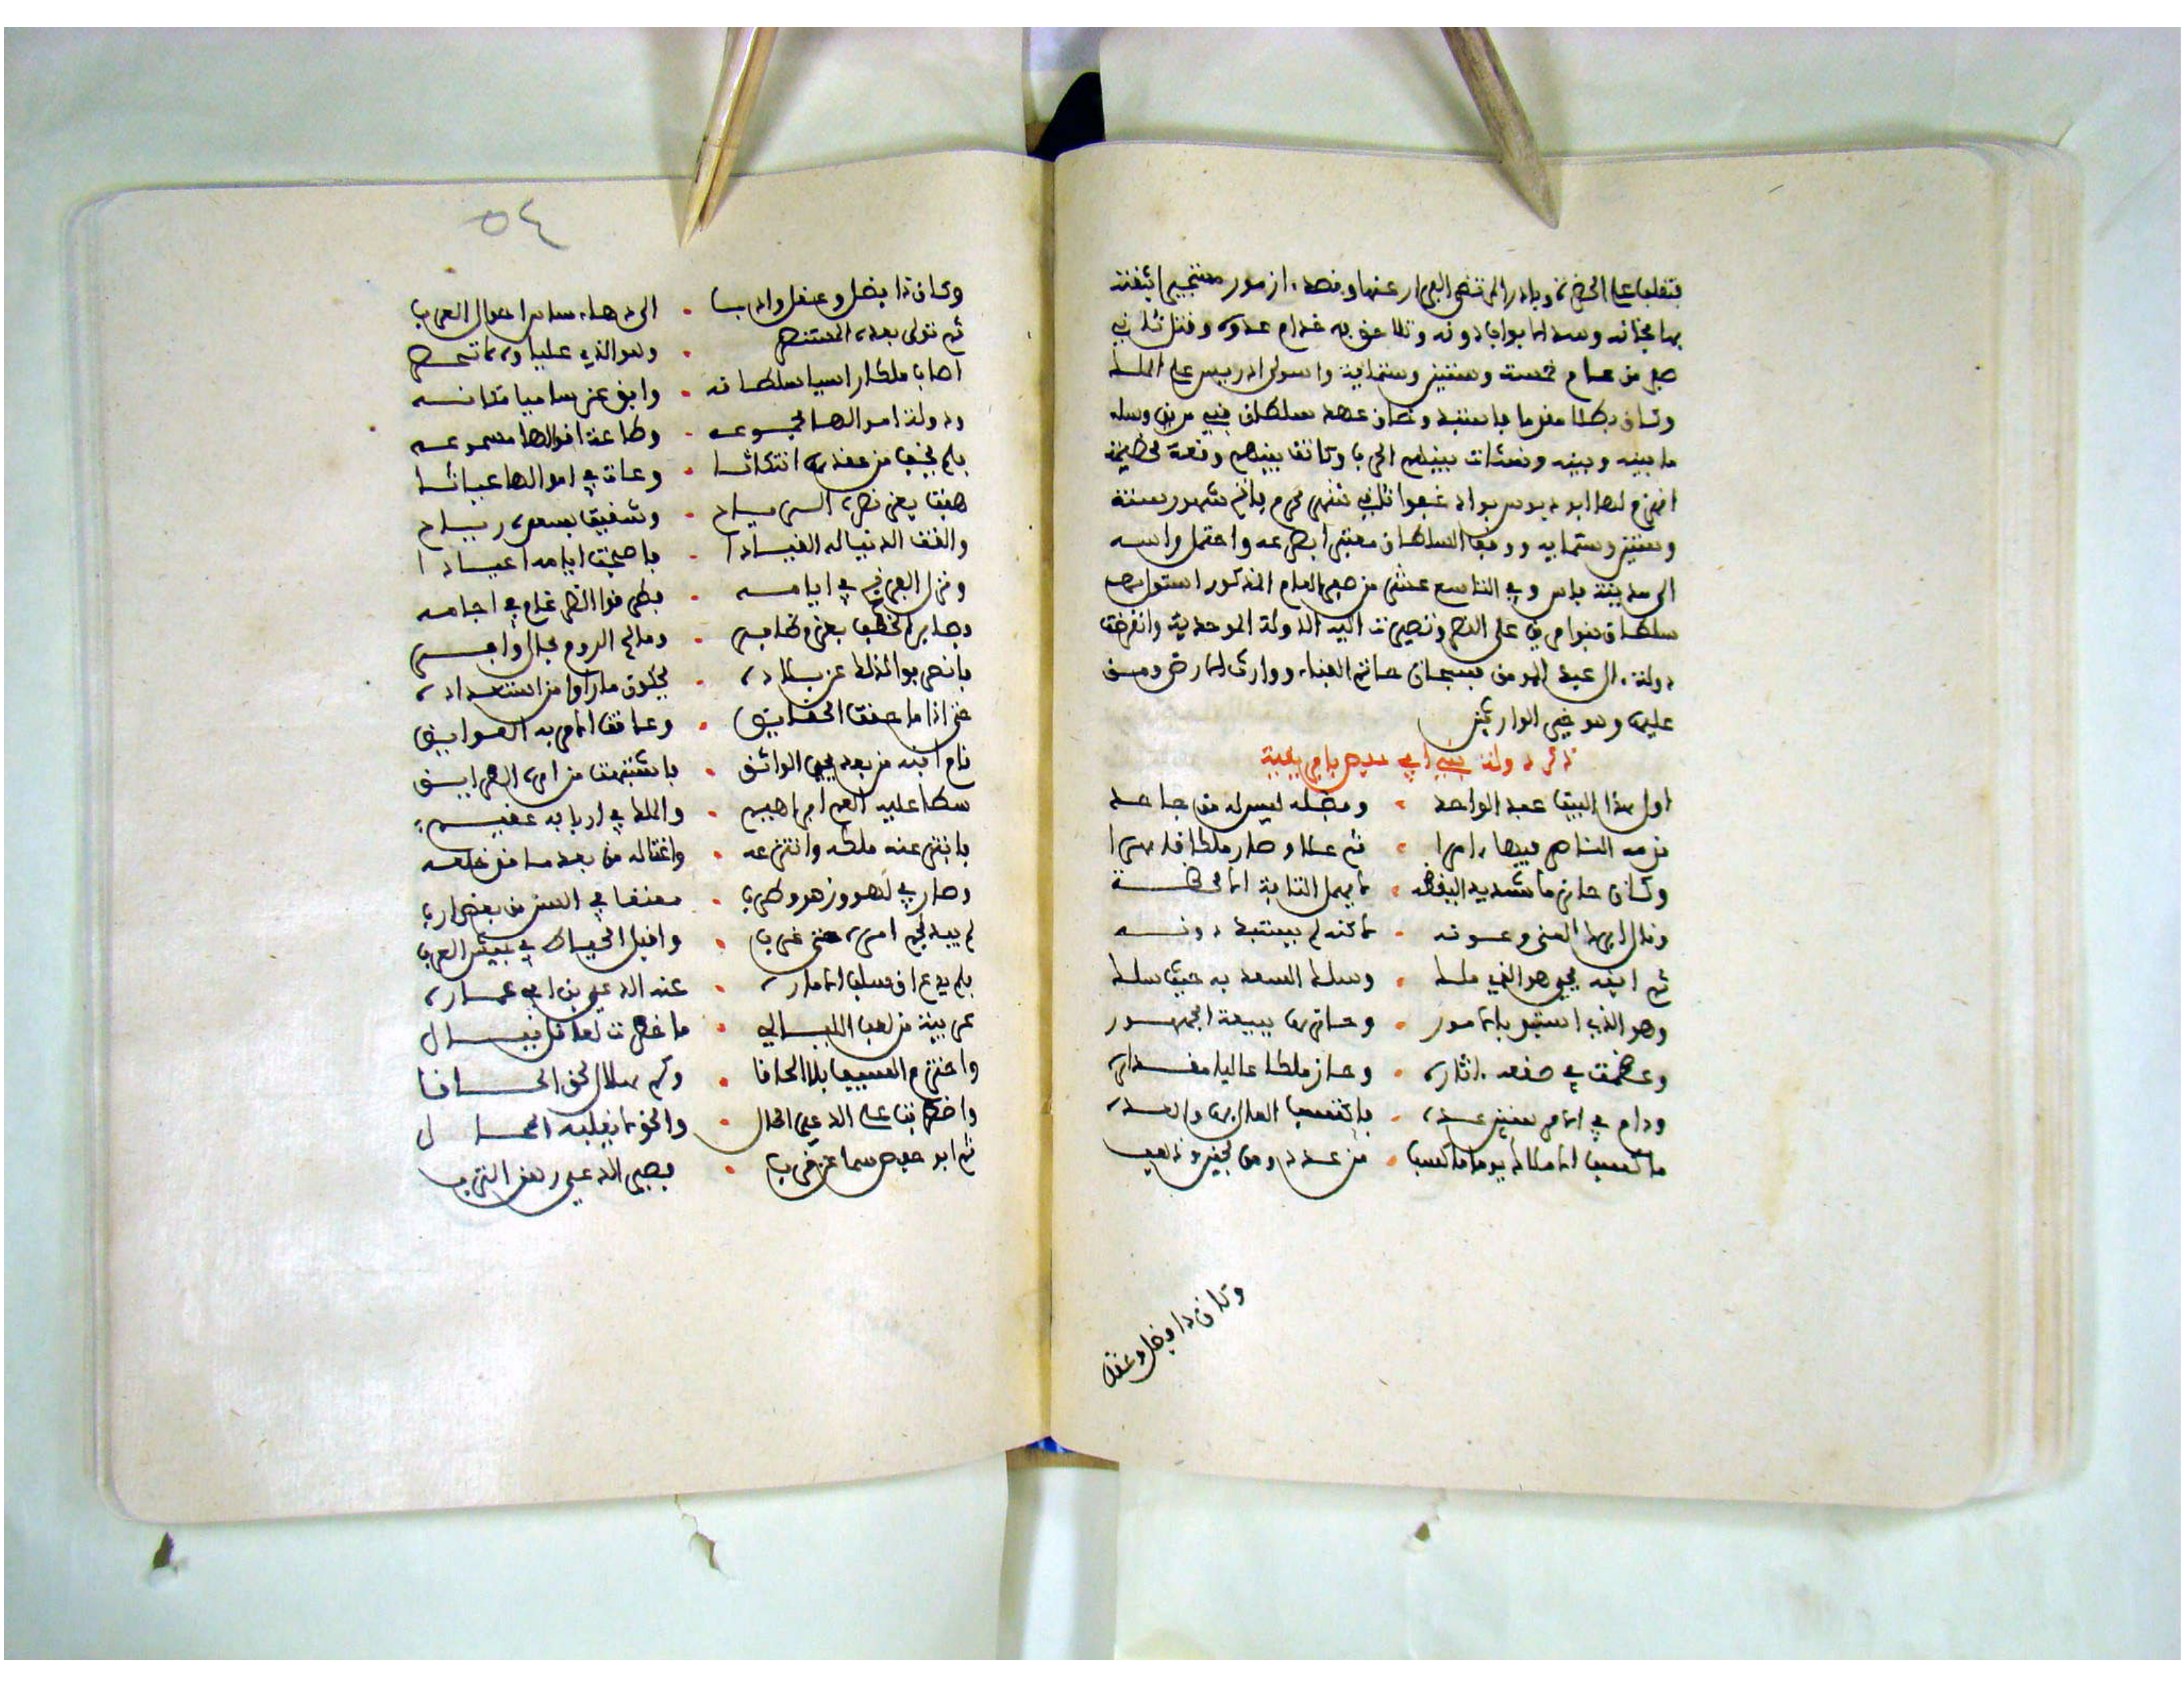 فتغلب على الحضرة وبادر المرتضى الفرار عنها وقصد ازمور مستجيرا بثقته
بها فخانه وسد الابواب دونه وتلاحق به خدام عدوه وقتل ثاني
صفر من عام خمسة وستين وستماية واستولى ادريس على الملك
وكان بطلا مقرما فاستبد وخان عهد سلطان بني مرين وسله
ما بينه وبينه ونشات بينهم الحرب وكانت بينهم وقعة عظيمة
انهزم لها ابو دبوس بواد غفوا ثاني شهر محرم فاتح شهور سنة
وستين وستماية ووقف السلطان معتبرا بمصرعه واحتمل راسه
الى مدينة فاس وفي التاسع عشر من صفر العام المذكور استولى
سلطان بنو مرين على الحضرة وتصيرت اليه الدولة الموحدية وانقرضت
دولة ال عبد المومن فسبحان حاتم الفناء ووارث الارض ومن
عليها وهو خير الوارثين
ذكر دولة بني ابي حفص بافريقية
اول هذا البيت عبد الواحد • وفضله ليس له من جاحد
قدمه الناصر فيها امرا • ثم علا وصار ملكا قاهرا
وكان حازما شديد اليقظه • لا يهمل الثانية اللحظة
ونال ابنها المنى وعونه • لاكنه لم يستبد دونه
ثم ابنه يحيى هو الذي ملك • وسلك السعد به حيث سلك
وهو الذي استبد بالامور • وحازها ببيعة الجمهور
وعظمت في صقعه اثاره • وحاز ملكا عاليا مقداره
ودام في الامر سنين عده • فاكتسب المال بها والعده
ما كسب الاملاك يوما ما كسب • من عدد ومن لجين وذهب
وكان ذا فضل وعقل
٥٤
وكان ذا فضل وعقل وادب • الى دهاء ساس احوال العرب
ثم تولى بعده المستنصر • وهو الذي علياه لا تنحصر
اصاب ملكا راسيا سلطانه • وابق عز ساميا مكانه
ودولة اموالها مجموعه • وطاعة اقوالها مسموعه
فلم يخف من عقدها انتكاثا • وعاث في اموالها عياثا
هبت بعز نصره الرياح • وسقيت بسعده رياح
والقت الدنيا له القيادا • فاصبحت ايامه اعيادا
ونزل الفرنج في ايامه • فطرقوا الضرغام في اجامه
وصابر الخطب بعز وظافر • وما لهم الروم مجال وافر
فانصرفوا اذ ذاك عن بلاده • يحكون ما راوا من استعداده
حتى اذا ما حقت الحقايق • وعاقت الامر به العوايق
قام ابنه من بعد يحيى الواثق • فاشتبهت من امره الطرايق
سطا عليه العم ابراهيم • والملك في اربابه عقيم
فابتز عنه ملكه وانتزعه • واغتاله من بعد ما قد خلعه
وصار في لهو وزهو وطرب • معتقا في السن من بعض الارب
لم يبد نجم امره حتى غرب • واقبل الحياط في بيت العرب
فلم يدع ان سلب الاماره • عنه الدعي بن ابي عماره
غريبة من لعب الليالي • ما خطرت لعاقل ببال
واخترم السيف بلا الحاقا • وكم هلال لحق الحاقا
واضطربت على الدعي الحال • والحق لا يغلبه المحال
ثم ابو حفص سما عن قرب • فصير الدعي رهن الترب